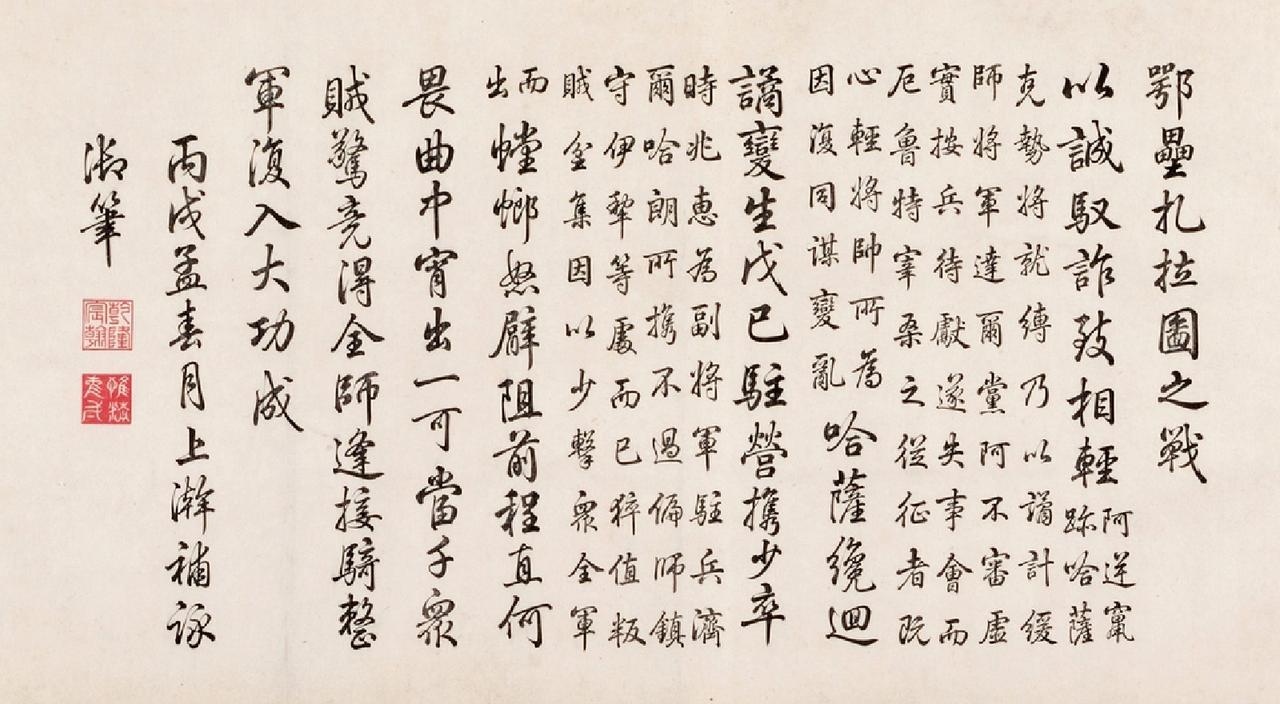 鄂壘扎拉圖之戰
以誠馭詐致相輕
阿逆竄
跡哈薩
克勢將就縛乃以譎計緩
師將軍達爾黨阿不審虛
實按兵待獻遂失事會而
厄魯特宰桑之從征者既
心輕將帥所為
因復同謀變亂
哈薩纔迴
譎變生戊已駐營攜少卒
時兆惠為副將軍駐兵濟
爾哈朗所攜不過偏師鎮
守伊犂等處而已猝值叛
賊坌集因以少擊衆全軍
而
出
螳螂怒臂阻前程直何
畏曲中宵出一可當千衆
賊驚竟得全師逢接騎整
軍復入大功成
丙戌孟春月上澣補詠
御筆
乾隆宸翰